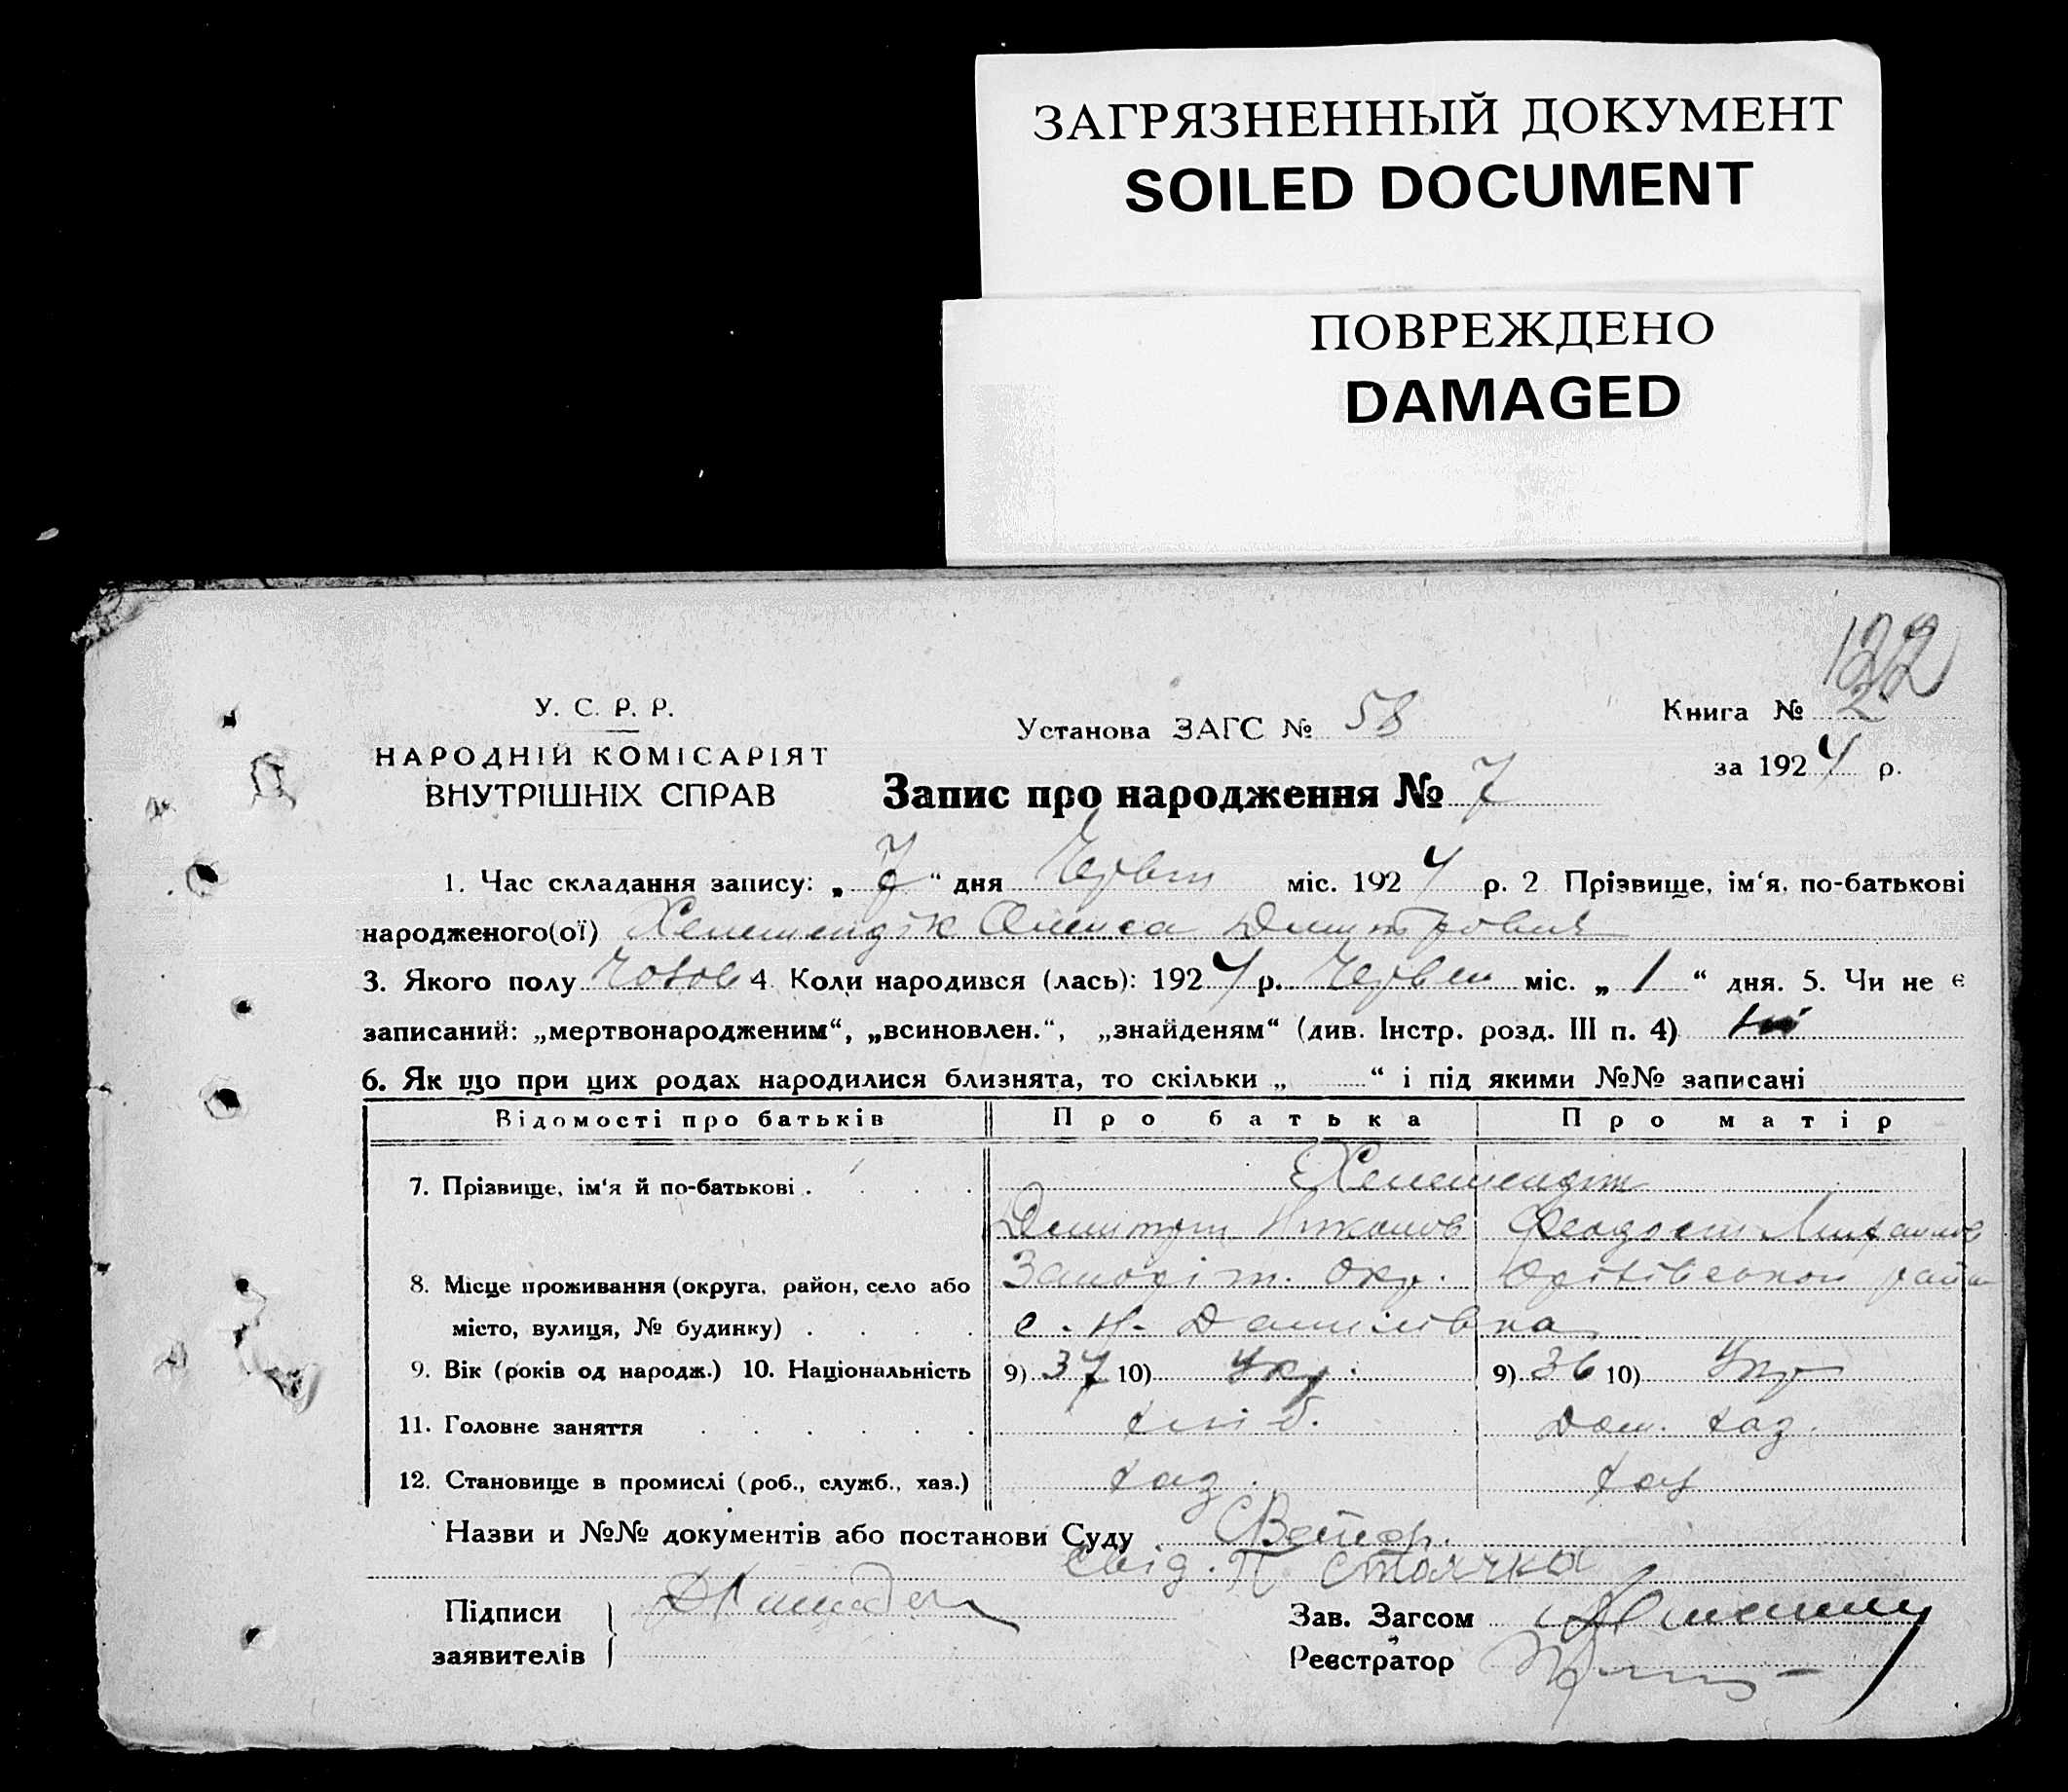 ЗАГРЯЗНЕННЫЙ ДОКУМЕНТ
SOILED DOCUMENT
ПОВРЕЖДЕНО
DAMAGED
122
У. С. Р. Р.
НАРОДНІЙ КОМІСАРІЯТ
ВНУТРІШНІХ СПРАВ
Установа ЗАГС № 58
Книга № 2
за 1924 р.
Запис про народження № 7
1. Час складання запису: „ 7 “ дня Червня міс. 1924 р. 2 Прізвище, ім‘я, по-батькові
народженого(ої) Олекса Дмитрович
3. Якого полу Чолов 4. Коли народився (лась): 1924 р. Червня міс. „ 1 “ дня. 5. Чи не є
записаний: „мертвонародженим“, „всиновлен.“, „знайденям“ (див. Інстр. розд. III п. 4) ні
6. Як що при цих родах народилися близнята, то скільки „ “ і під якими №№ записані
Відомості про батьків Про батька Про матір
7. Прізвище, ім‘я й по-батькові
Дмитро Никонов Феодосія Михайлов
8. Місце проживання (округа, район, село або Запоріж. окр. Оріхівського район
місто, вулиця, № будинку) с. Н. Данилівка
9. Вік (років од народж.) 10. Національність 9) 37 10) Укр. 9) 36 10) Укр
11. Головне заняття хліб. Дом. хаз.
12. Становище в промислі (роб., служб., хаз.) хаз. хаз
Назви и №№ документів або постанови Суду
свід. П
Підписи
заявителів
Зав. Загсом
Реєстратор